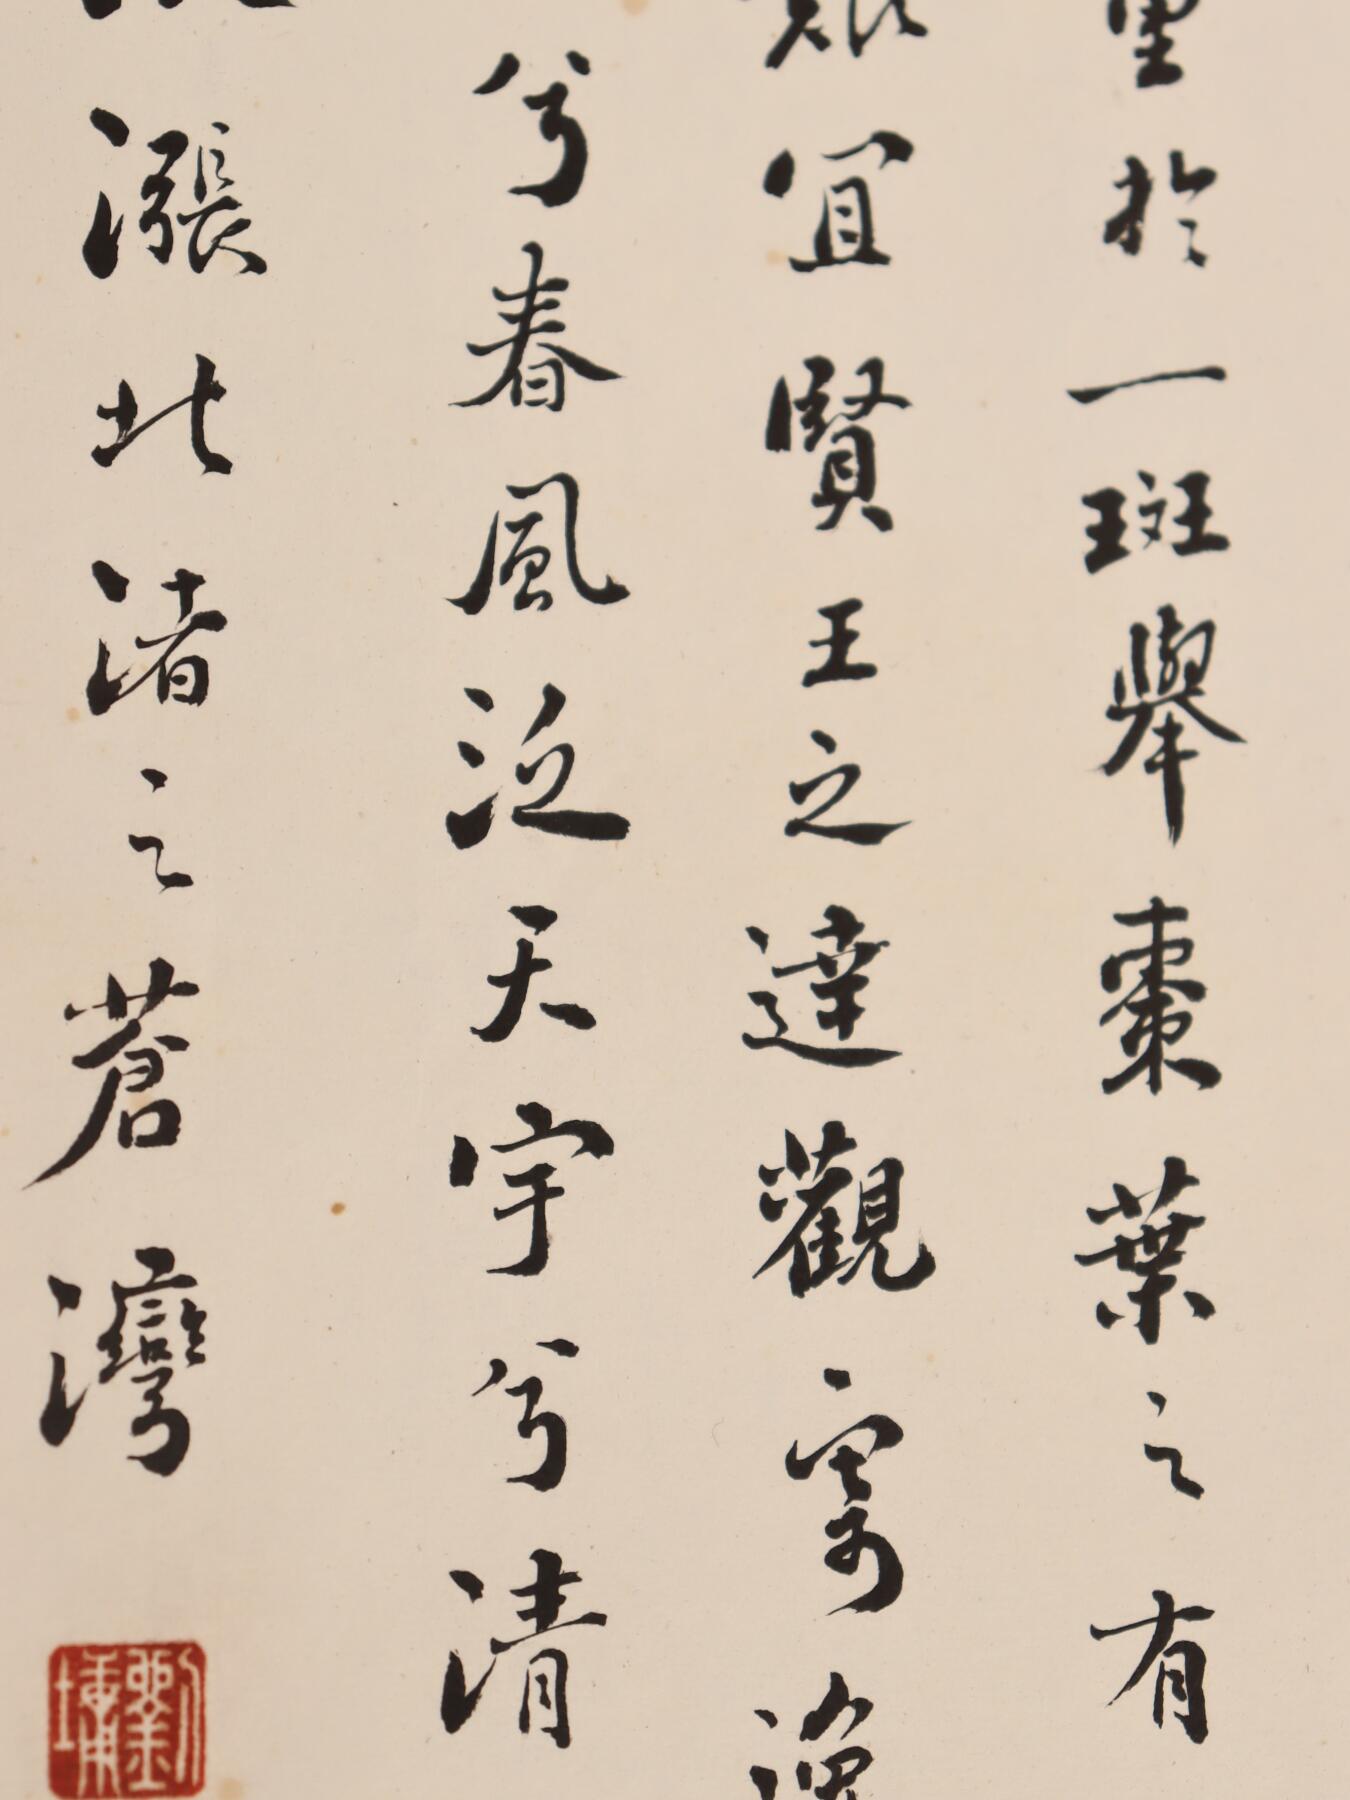 里於一斑舉棗葉之有
宜賢王之達觀寄
兮春風泛天宇兮清
漲北渚之蒼灣
劉墉